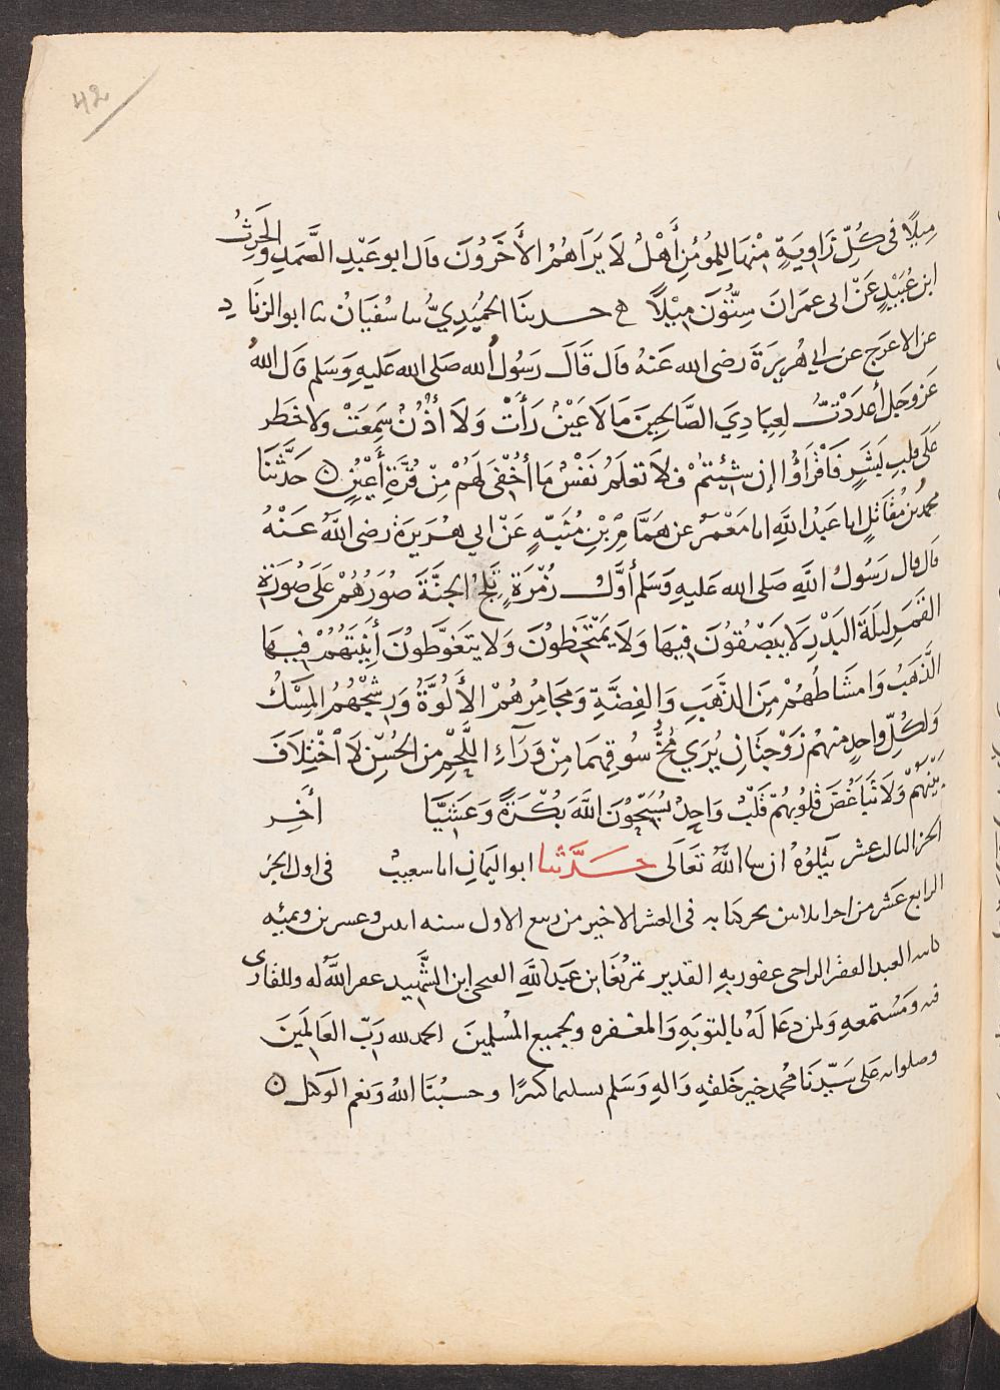 42
ميلًا فى كُلِّ زَاوِيَةٍ مِنْهَا لِلمُؤمِنِ أَهْلٌ لَا يَرَاهُمْ الأَخَرُونَ قال ابو عَبْدِ الصَّمَدِ والحَرِثُ
ابن عُبَيْدٍ عَنْ ابى عمرَانَ سِتُّونَ مِيْلًا حدثنَا الحُمَيْدِيُّ سا سُفيَانُ سا ابو الزنَادِ
عن الاعرَج عن ابي هُرَيرَةَ رضى الله عَنهُ قال قَالَ رَسُولُ الله صَلى الله عَليهِ وَسَلم قال اللهُ
عَز وجَل أَعدَدْتُ لِعِبَادِيَ الصَّالِحِينَ مَا لَا عَيْنٌ رَأَتْ وَلَا أُذُنٌ سَمِعَتْ ولا خَطَر
عَلَى قَلبِ بَشَرٍ فَاقْرَاؤُا إِن شِئِيتمْ فلَا تعلَمُ نَفْسٌ مَا أُخْفِىَ لَهُمْ مِنْ قُرَّةِ أَعْيُنٍ ۞ حَدَّثَنَا
محمدُ بنُ مُقَاتِلٍ انا عَبْدُ اللَّهِ انا مَعْمَرٌ عن هَمَّامِ بْنِ مُنَبّهٍ عَنْ ابي هُرَيرَةَ رضى اللهُ عَنْهُ
قال قال رَسُولُ اللَّهِ صَلى الله عَليهِ وَسَلم أَوَّلُ زُمْرَةٍ تَلِجُ الجنَّةَ صُوَرُهُمْ عَلَى صُورَةِ
القَمَرِ ليلَةَ البَدْرِ لَا يَبْصُقُونَ فِيهَا وَلَا يَمْتَخِطُونَ وَلَا يَتَغَوَّطُونَ أٰنِيَتُهُمْ فِيهَا
الَّذهَبُ وَامشَاطُهُمْ مِنَ الذَّهَبِ وَالفِضَّةِ وَمَجَامِرُهُمْ الأَلُوَّةُ وَرشْحُهُمُ المِسْكُ
وَلكُلِّ واحِدٍ منهمْ زَوْجَتَانِ يُرَي مُخُّ سُوقِهِمَا مِنْ وَرَآءِ اللَّحْمِ من الحُسْنِ لَا اخْتِلَافَ
بَيْنَهُمْ وَلَا تَبَاغُضَ قُلُوبُهُمْ قَلْبٌ وَاحِدٌ يُسَبّحُوْنَ اللَّهَ بُكْرَةً وَعَشِيًّا أَخِر
الجزء الثالث عشر يَتْلوُهُ ان سا اللَّهُ تعَالَى حَدَّثنا ابو اليَمانِ انا سعيبٌ فى اول الجزء
الرابع عَشر من اجزا ثلاثين تحر كتابه فى العشر الاخير من ربيع الاول سنه اثنين وعسرين وتمئيه
كاتبه العبد الفقير الراجى عفو ربهِ القدير تمربُغَا بن عَبد اللَّهِ ابن الشَّهِيد غفر اللَّهُ له وللقارى
فيه وَمُسْتمعهِ وَلمن دعَا لَهُ بالتوبَهِ وَالمغفره ولجميع المُسْلمينَ الحمد لله رَبّ العَالمَينَ
وصلواته عَلى سَيّدنَا محُمد خير خَلقهِ وَالهِ وَسَلم تسليما كثيرًا وحسبُنَا اللهُ وَنعم الوكيل ۞